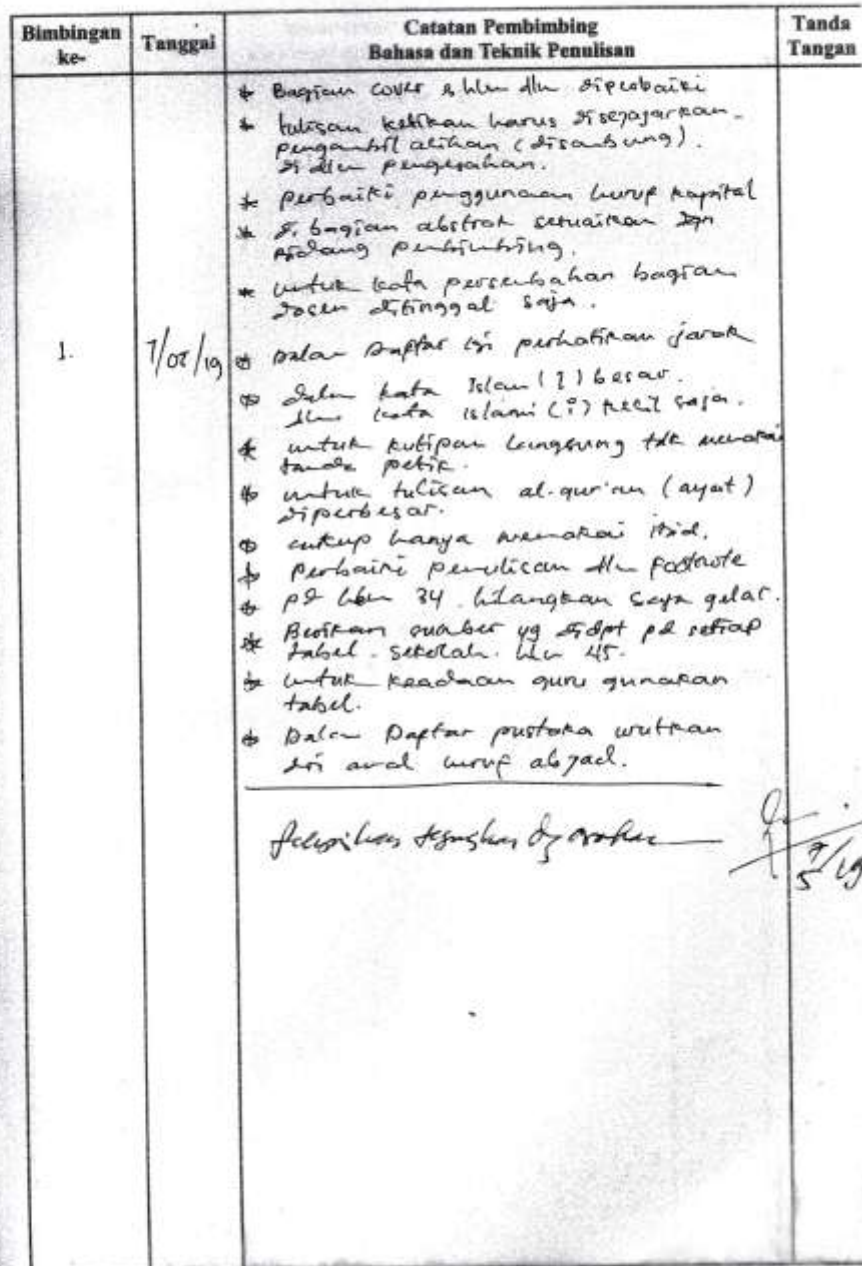 Bimbingan ke-
Tanggal
Catatan Pembimbing
Bahasa dan Teknik Penulisan
Tanda Tangan
1.
7/05/19
* Bagian cover & hlm dlm diperbaiki
* tulisan ketikan harus disejajarkan
pengambil alihan (disambung).
di dlm pengesahan.
* perbaiki penggunaan huruf kapital
* di bagian abstrak sesuaikan dgn
bidang pembimbing.
* untuk kata persembahan bagian
dosen ditinggal saja.
* Dalam Daftar isi perhatikan jarak
* dalam kata Islam (I) besar.
dlm kata islami (i) kecil saja.
* untuk kutipan langsung tdk memakai
tanda petik.
* untuk tulisan al-qur'an (ayat)
diperbesar.
* cukup hanya memakai ibid.
* Perbaiki penulisan dlm footnote
* pd hlm 34 hilangkan saja gelar.
* Berikan sumber yg didpt pd setiap
tabel. sekolah. hlm 45.
* untuk keadaan guru gunakan
tabel.
* Dalam Daptar pustaka urutkan
dri awal huruf abjad.
7/5 19